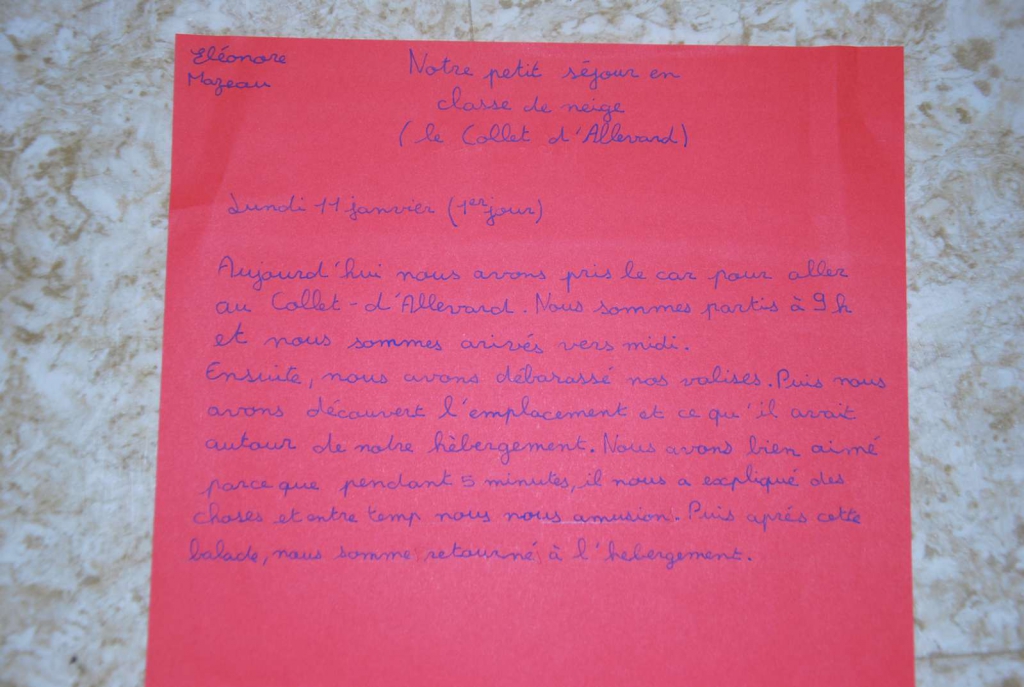 Eléonore
Mazeau
Notre petit séjour en
classe de neige
(le Collet d'Allevard)
Lundi 11 janvier (1er jour)
Aujourd'hui nous avons pris le car pour aller
au Collet-d'Allevard. Nous sommes partis à 9h
et nous sommes arivés vers midi.
Ensuite, nous avons débarassé nos valises. Puis nous
avons découvert l'emplacement et ce qu'il avait
autour de notre hèbergement. Nous avons bien aimé
parce que pendant 5 minutes, il nous a expliqué des
choses et entre temp nous nous amusion. Puis aprés cette
balade, nous somme retourné à l'hebergement.